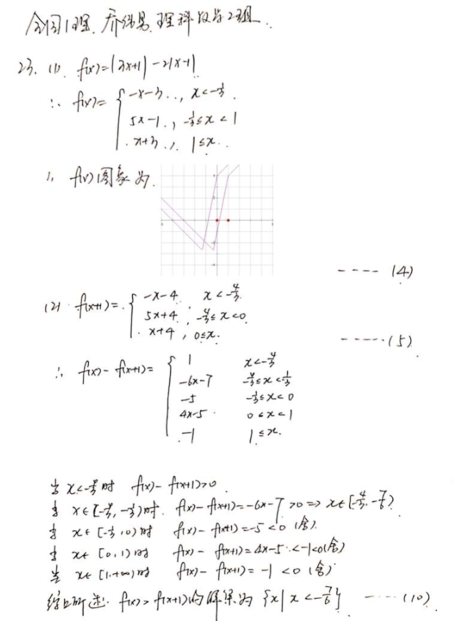 全国1理. 乔纬易. 理科数学2组.
23. (1) f(x)=|3x+1|-2|x-1|
∴ f(x)= { -x-3 .., x<-1/3 .
5x-1., -1/3≤x<1
x+3 ., 1≤x..
∴ f(x)图象为.
---- (4)
(2) f(x+1)=. { -x-4 . x<-4/3.
5x+4 . -4/3≤x<0.
x+4 , 0≤x.
----- (5)
∴ f(x)-f(x+1)= { 1 x<-4/3
-6x-7 -4/3≤x<-1/3
-5 -1/3≤x<0
4x-5. 0≤x<1
-1 1≤x.
当 x<-4/3时 f(x)-f(x+1)>0.
当 x∈[-4/3,-1/3)时. f(x)-f(x+1)=-6x-7>0 => x∈[-4/3,-7/6)
当 x∈[-1/3,0)时 f(x)-f(x+1)=-5<0 (舍).
当 x∈[0,1)时 f(x)-f(x+1)=4x-5.<-1<0(舍)
当 x∈[1,+∞)时 f(x)-f(x+1)=-1<0 (舍)
综上所述. f(x)>f(x+1)的解集为 {x|x<-7/6} ---- (10)